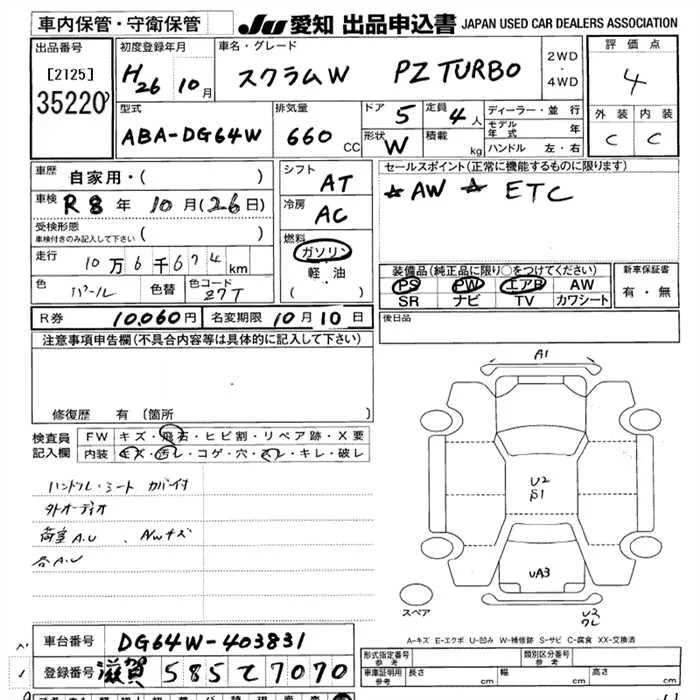 車内保管・守衛保管
JU 愛知 出品申込書 JAPAN USED CAR DEALERS ASSOCIATION
出品番号
[2125]
35220
初度登録年月
H26 10月
車名・グレード
スクラムW PZ TURBO
2WD・4WD
評価点
4
外装 内装
C C
型式
ABA-DG64W
排気量
660 CC
ドア 5
定員 4人
形状 W
積載 kg
ディーラー・並行
モデル年式 年
ハンドル 左・右
車歴 自家用・( )
車検 R8年 10月(26日)
受検形態 ( )
車検付きのみ記入して下さい
走行 10万6千674km
色 パール 色替 色コード 27T
シフト AT
冷房 AC
燃料
ガソリン
・
軽油
( )
セールスポイント(正常に機能するものに限ります)
☆ AW ☆ ETC
装備品(純正品に限り○をつけてください)
PS PW エアB AW
SR ナビ TV カワシート
新車保証書
有・無
R券 10,060円 名変期限 10月10日
後日品
注意事項申告欄(不具合内容等は具体的に記入して下さい)
修復歴 有(箇所 )
検査員記入欄
FW キズ・飛石・ヒビ割・リペア跡・X要
内装 キズ・汚レ・コゲ・穴・スレ・キレ・破レ
ハンドル・シート カバー付
外オーディオ
荷室A.U、AWキズ
各A.U
A1
U2
S1
UA3
U2
スペア
A-キズ E-エクボ U-凹み W-補修跡 S-サビ C-腐食 XX-交換済
車台番号 DG64W-403831
登録番号 滋賀 585 て 7070
形式指定番号 参考
類別区分番号 参考
車庫証明用 参考
長さ cm 幅 cm 高さ cm